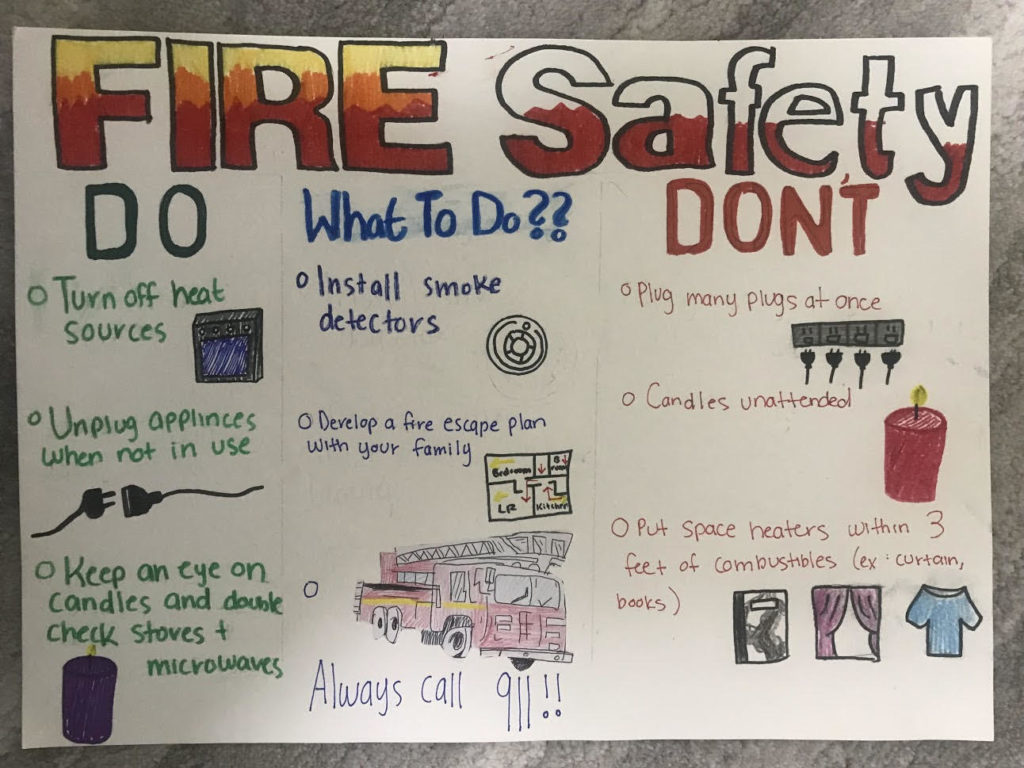 FIRE Safety
DO
o Turn off heat
sources
o Unplug applinces
when not in use
o Keep an eye on
candles and double
check stoves +
microwaves
What To Do??
o Install smoke
detectors
o Develop a fire escape plan
with your family
Bedroom
B
room
LR
Kitchen
o
Always call 911!!
DON'T
o Plug many plugs at once
o Candles unattended
o Put space heaters within 3
feet of combustibles (ex: curtain,
books)